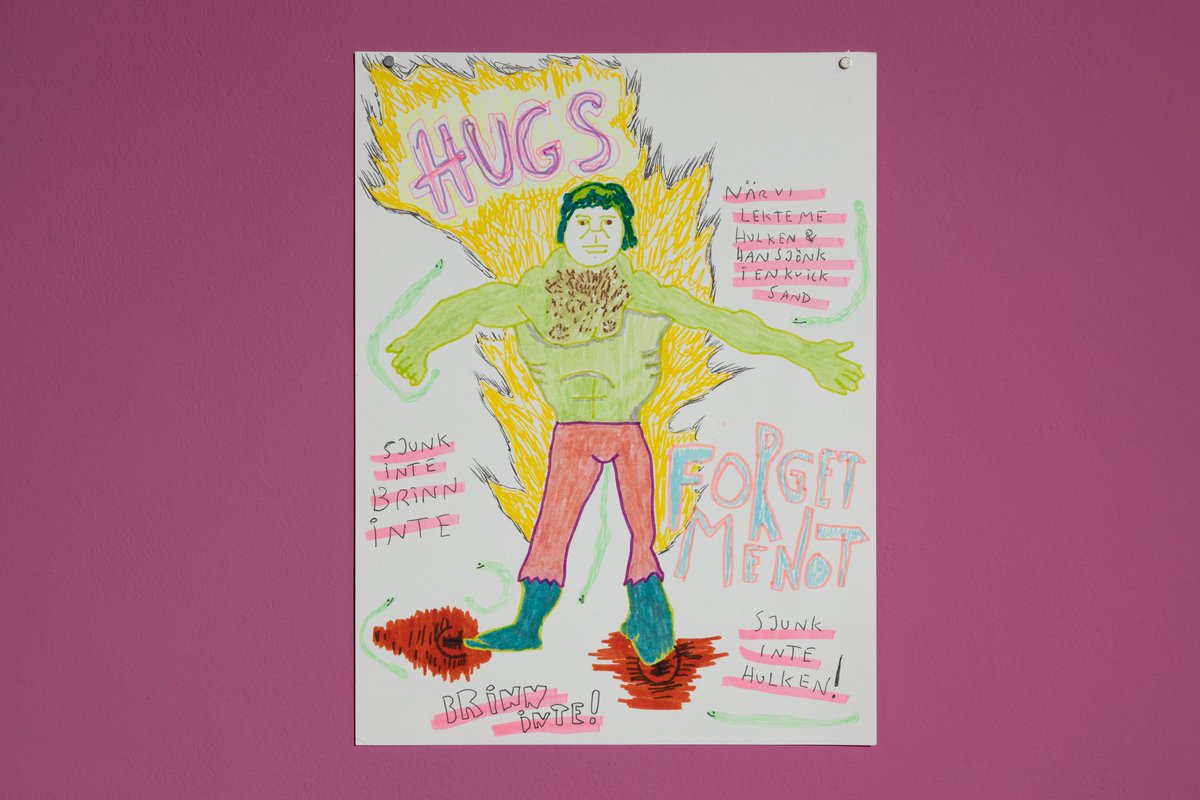 HUGS
NÄR VI
LEKTE ME
HULKEN &
HAN SJÖNK
I EN KVICK
SAND
SJUNK
INTE
BRINN
INTE
FORGET
ME NOT
SJUNK
INTE
HULKEN!
BRINN
INTE!